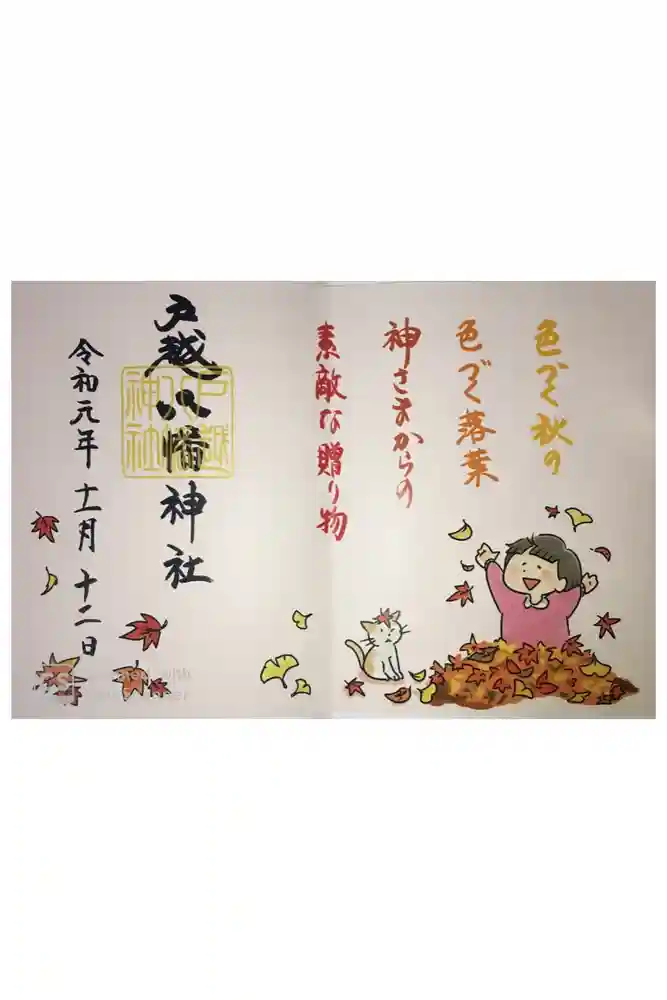 色づく秋の
色づく落葉
神さまからの
素敵な贈り物
戸越八幡神社
戸越
八幡
神社
令和元年 十一月 十二日